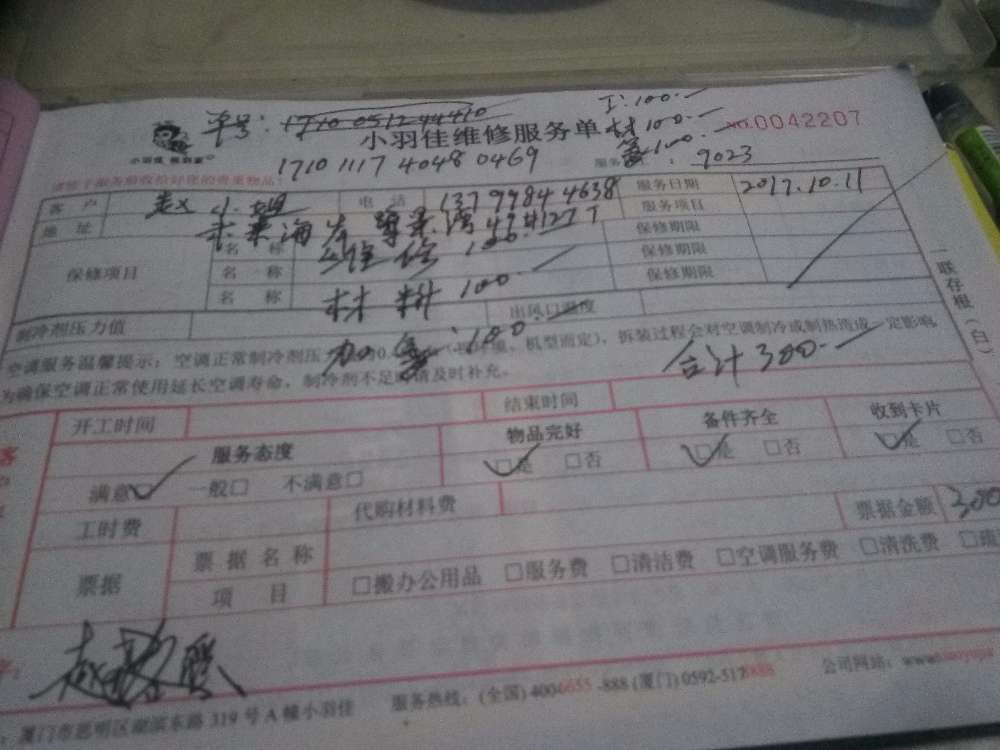 单号: 1710051244410 工:100.—
小羽佳维修服务单 材100.— NO.0042207
小羽佳 氟100.—
1710 1117 4048 0469 服务 : 9023
客户 赵小姐 电话 13799844638 服务日期 2017.10.11
地址 未来海岸 服务项目
保修项目 名称 维修 100.— 保修期限
名称 保修期限
名称 材料 100 — 保修期限
制冷剂压力值 出风口温度
加氟:100.
空调服务温馨提示:空调正常制冷剂压 机型而定),拆装过程会对空调制冷或制热造成一定影响,
为确保空调正常使用延长空调寿命,制冷剂不足时请及时补充。 合计300.—
一联存根(白)
开工时间 结束时间
服务态度 物品完好 备件齐全 收到卡片
满意☑ 一般□ 不满意□ ☑是 □否 ☑是 □否 ☑是 □否
工时费 代购材料费 票据金额 300
票据 票据名称
项目 □搬办公用品 □服务费 □清洁费 □空调服务费 □清洗费
厦门市思明区湖滨东路 319 号 A 幢小羽佳 服务热线:(全国) 4006655-888 (厦门) 0592-517 公司网站:www.xiaoyujia